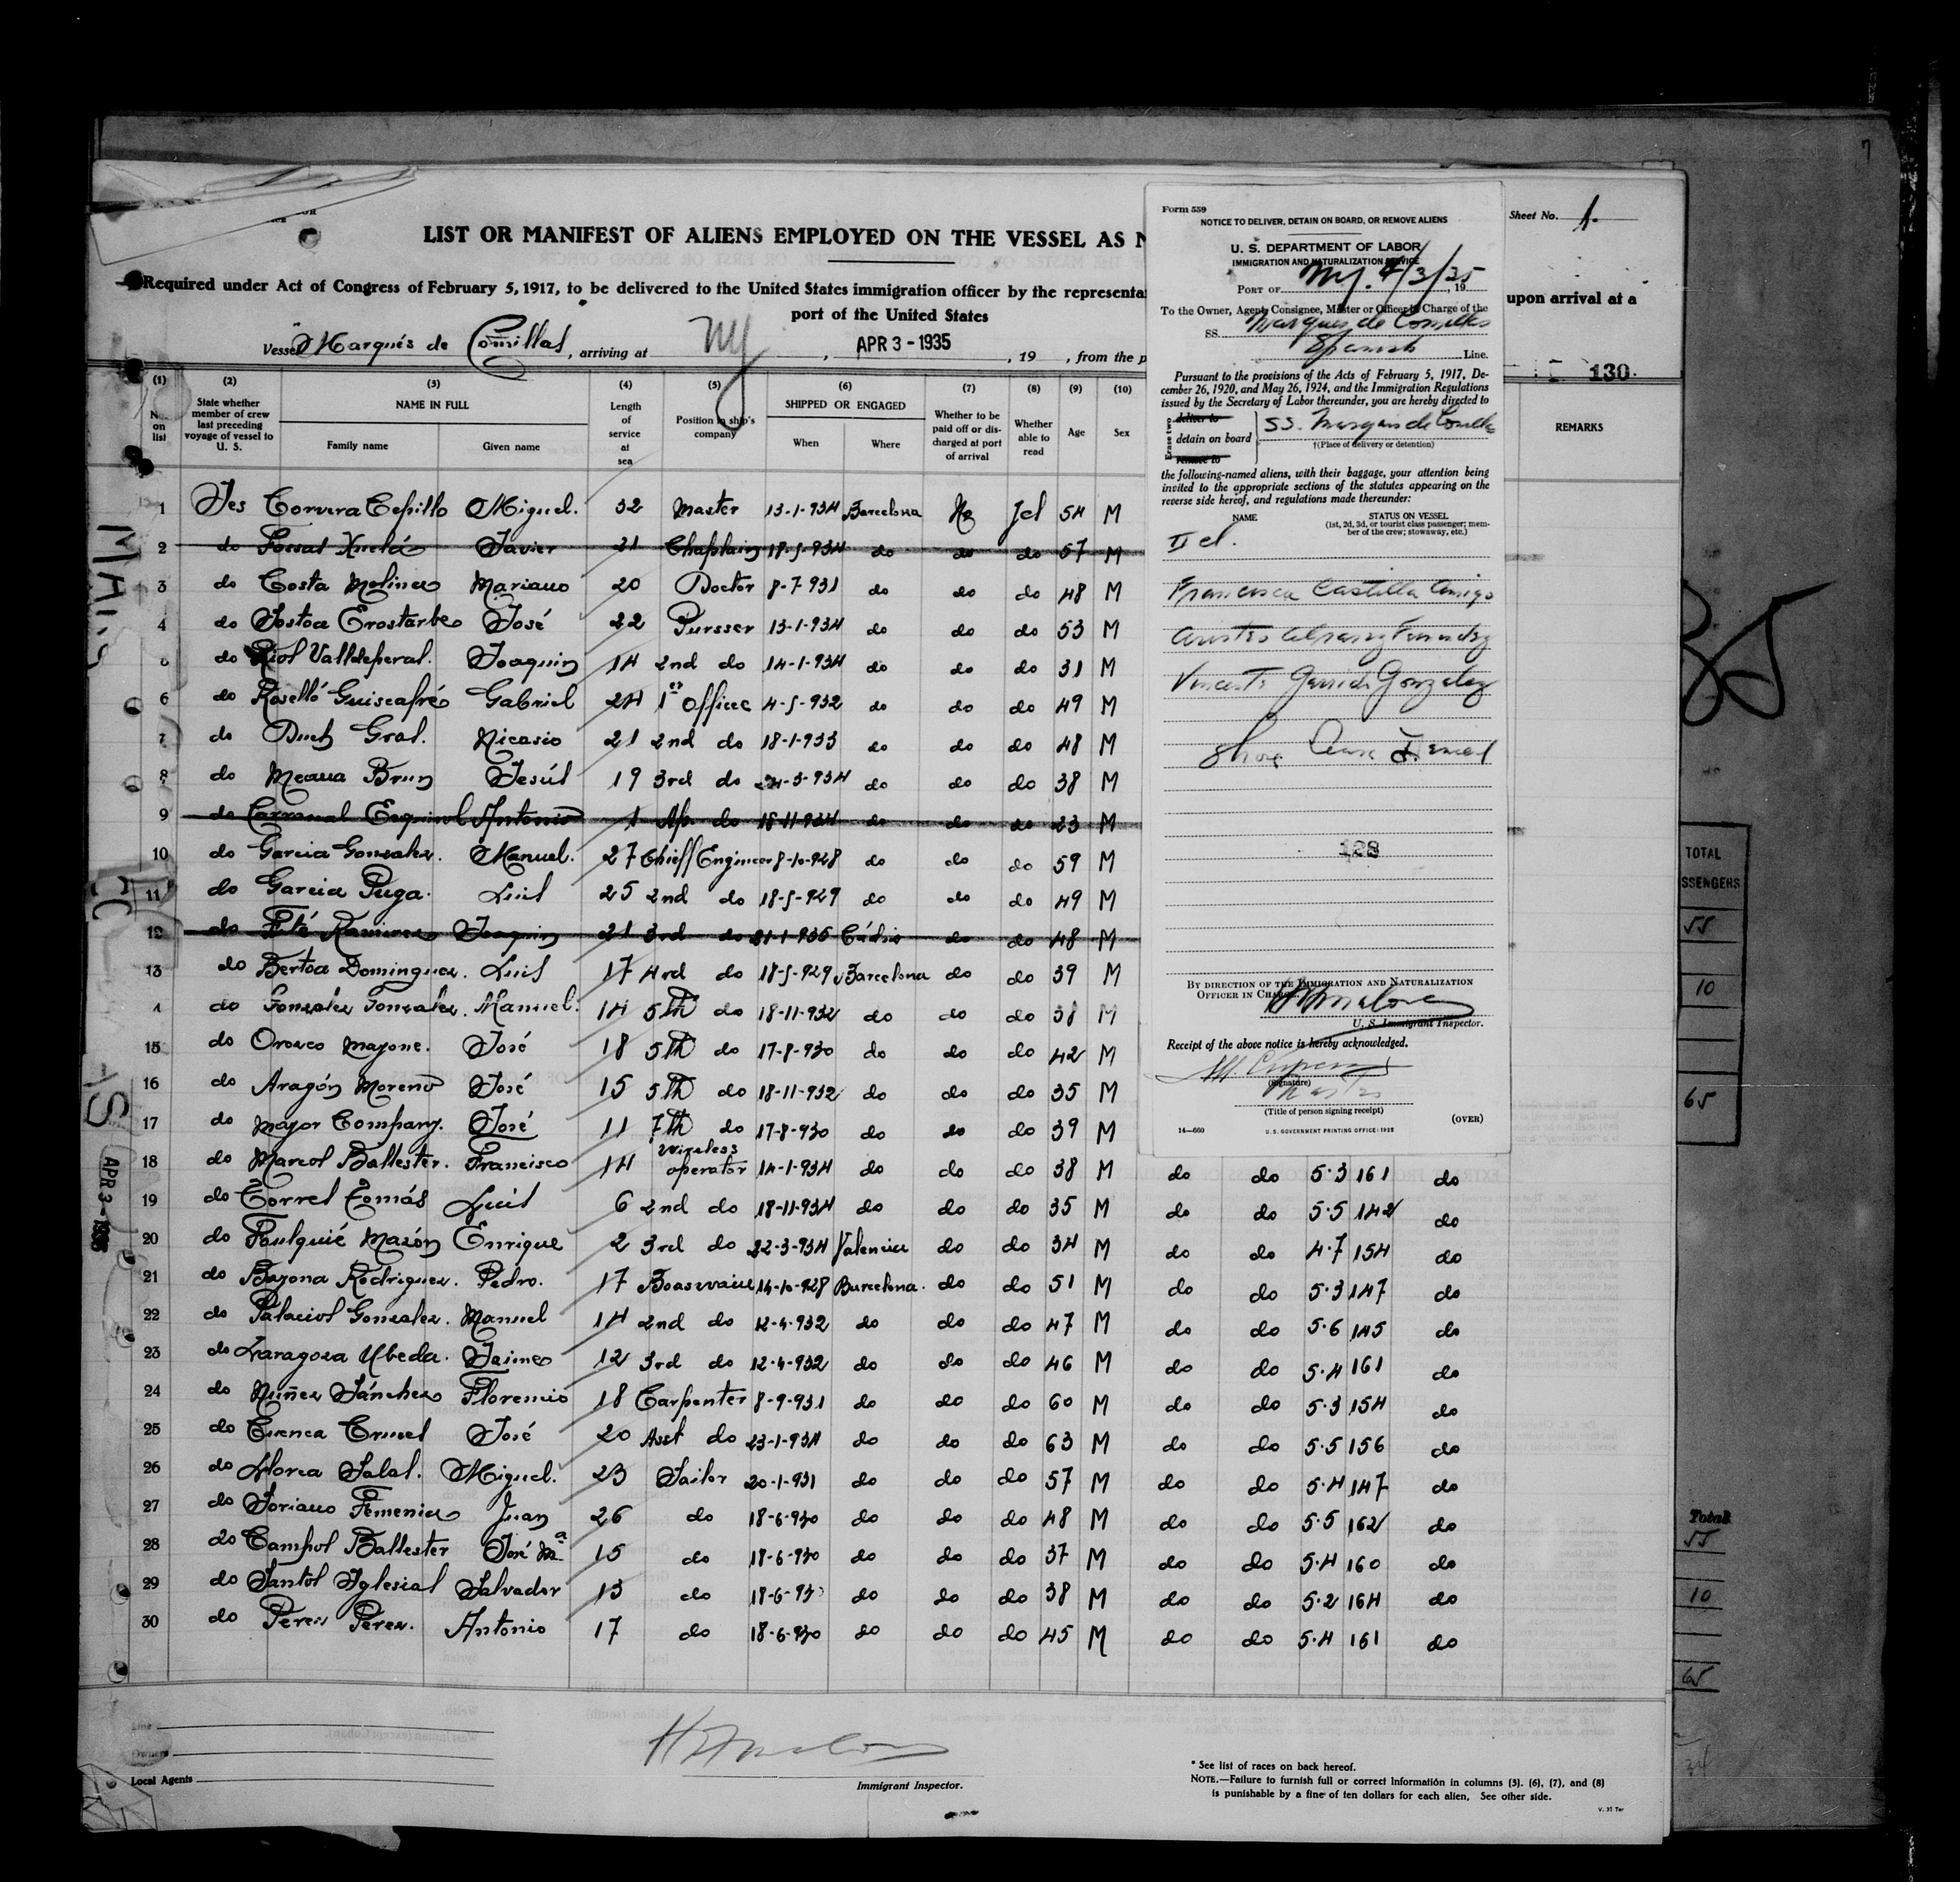 7
Sheet No. 1.
LIST OR MANIFEST OF ALIENS EMPLOYED ON THE VESSEL AS
Required under Act of Congress of February 5, 1917, to be delivered to the United States immigration officer by the representa
upon arrival at a
port of the United States
Vessel Marqués de Comillas, arriving at NY, APR 3 - 1935, 19 , from the p
130
(1) (2) (3) (4) (5) (6) (7) (8) (9) (10)
No. on list
State whether member of crew last preceding voyage of vessel to U. S.
NAME IN FULL
Family name Given name
Length of service at sea
Position in ship's company
SHIPPED OR ENGAGED
When Where
Whether to be paid off or discharged at port of arrival
Whether able to read
Age
Sex
REMARKS
1 Yes Corvera Cepillo Miguel. 32 Master 13-1-934 Barcelona No Yes 54 M
2 do Javier 21 Chaplain 18-5-934 do do do 57 M
3 do Costa Molinas Mariano 20 Doctor 8-7-931 do do do 48 M
4 do Erostarbe José 22 Pursser 13-1-934 do do do 53 M
do Riol Valldeperal. Joaquin 14 2nd do 14-1-934 do do do 31 M
6 do Roselló Guiscafré Gabriel 24 1er Officer 4-5-932 do do do 49 M
7 do Gral. Nicasio 21 2nd do 18-1-933 do do do 48 M
8 do Meana Brun Jesús 19 3rd do 24-3-934 do do do 38 M
9 do Carrasual Esquivel Antonio 1 Ap. do 18-11-934 do do do 23 M
10 do Garcia Gonzalez. Manuel. 27 Chieff Engineer 8-10-928 do do do 59 M
11 do Garcia Puga. Luis 25 2nd do 18-5-929 do do do 49 M
12 do Ramirez Joaquin 21 3rd do 21-1-935 Cádiz do do 48 M
13 do Bertoa Dominguez. Luis 17 4rd do 18-5-929 Barcelona do do 39 M
4 do Gonzalez Gonzalez. Manuel. 14 5th do 18-11-932 do do do 38 M
15 do Orozco Mayone. José 18 5th do 17-8-930 do do do 42 M
16 do Aragón Moreno José 15 5th do 18-11-932 do do do 35 M
17 do Mayor Company. José 11 7th do 17-8-930 do do do 39 M
18 do Marcos Ballester. Francisco 14 Wireless operator 14-1-934 do do do 38 M do do 5·3 161 do
19 do Torres Tomás Luis 6 2nd do 18-11-934 do do do 35 M do do 5·5 142 do
20 do Foulquié Mazón Enrique 2 3rd do 22-3-934 Valencia do do 34 M do do 4·7 154 do
21 do Bayona Rodriguez. Pedro. 17 14-10-928 Barcelona. do do 51 M do do 5·3 147 do
22 do Palacios Gonzalez. Manuel 14 2nd do 12-4-932 do do do 47 M do do 5·6 145 do
23 do Zaragoza Ubeda. Jaime 12 3rd do 12-4-932 do do do 46 M do do 5·4 161 do
24 do Nuñez Sánchez Florencio 18 Carpenter 8-9-931 do do do 60 M do do 5·3 154 do
25 do Cuenca José 20 Asst do 23-1-934 do do do 63 M do do 5·5 156 do
26 do Llorca Salas. Miguel. 23 Sailor 20-1-931 do do do 57 M do do 5·4 147 do
27 do Soriano Femenia Juan 26 do 18-6-930 do do do 48 M do do 5·5 162 do
28 do Campos Ballester José Mª 15 do 18-6-930 do do do 37 M do do 5·4 160 do
29 do Santos Iglesias Salvador 13 do 18-6-930 do do do 38 M do do 5·2 164 do
30 do Perez Perez. Antonio 17 do 18-6-930 do do do 45 M do do 5·4 161 do
Owners
Local Agents
Immigrant Inspector.
* See list of races on back hereof.
NOTE.—Failure to furnish full or correct information in columns (3), (6), (7), and (8)
is punishable by a fine of ten dollars for each alien. See other side.
Form 559
NOTICE TO DELIVER, DETAIN ON BOARD, OR REMOVE ALIENS
U. S. DEPARTMENT OF LABOR
IMMIGRATION AND NATURALIZATION SERVICE
PORT OF NY. 4/3/35, 19
To the Owner, Agent, Consignee, Master or Officer in Charge of the
SS. Marques de Comillas
Spanish Line.
Pursuant to the provisions of the Acts of February 5, 1917, De-
cember 26, 1920, and May 26, 1924, and the Immigration Regulations
issued by the Secretary of Labor thereunder, you are hereby directed to
Erase two
deliver to
detain on board SS. Marques de Comillas
remove to
†(Place of delivery or detention)
the following-named aliens, with their baggage, your attention being
invited to the appropriate sections of the statutes appearing on the
reverse side hereof, and regulations made thereunder:
NAME STATUS ON VESSEL
(1st, 2d, 3d, or tourist class passenger; mem-
ber of the crew; stowaway, etc.)
II cl.
Francisca Castilla Amigo
Vicente Garrido Gonzalez
128
BY DIRECTION OF THE IMMIGRATION AND NATURALIZATION
OFFICER IN CHARGE.
U. S. Immigrant Inspector.
Receipt of the above notice is hereby acknowledged.
(Signature)
Master
(Title of person signing receipt)
(OVER)
14—660 U. S. GOVERNMENT PRINTING OFFICE: 1935
APR 3 - 1935
TOTAL
SSENGERS
55
10
65
Total
55
10
65